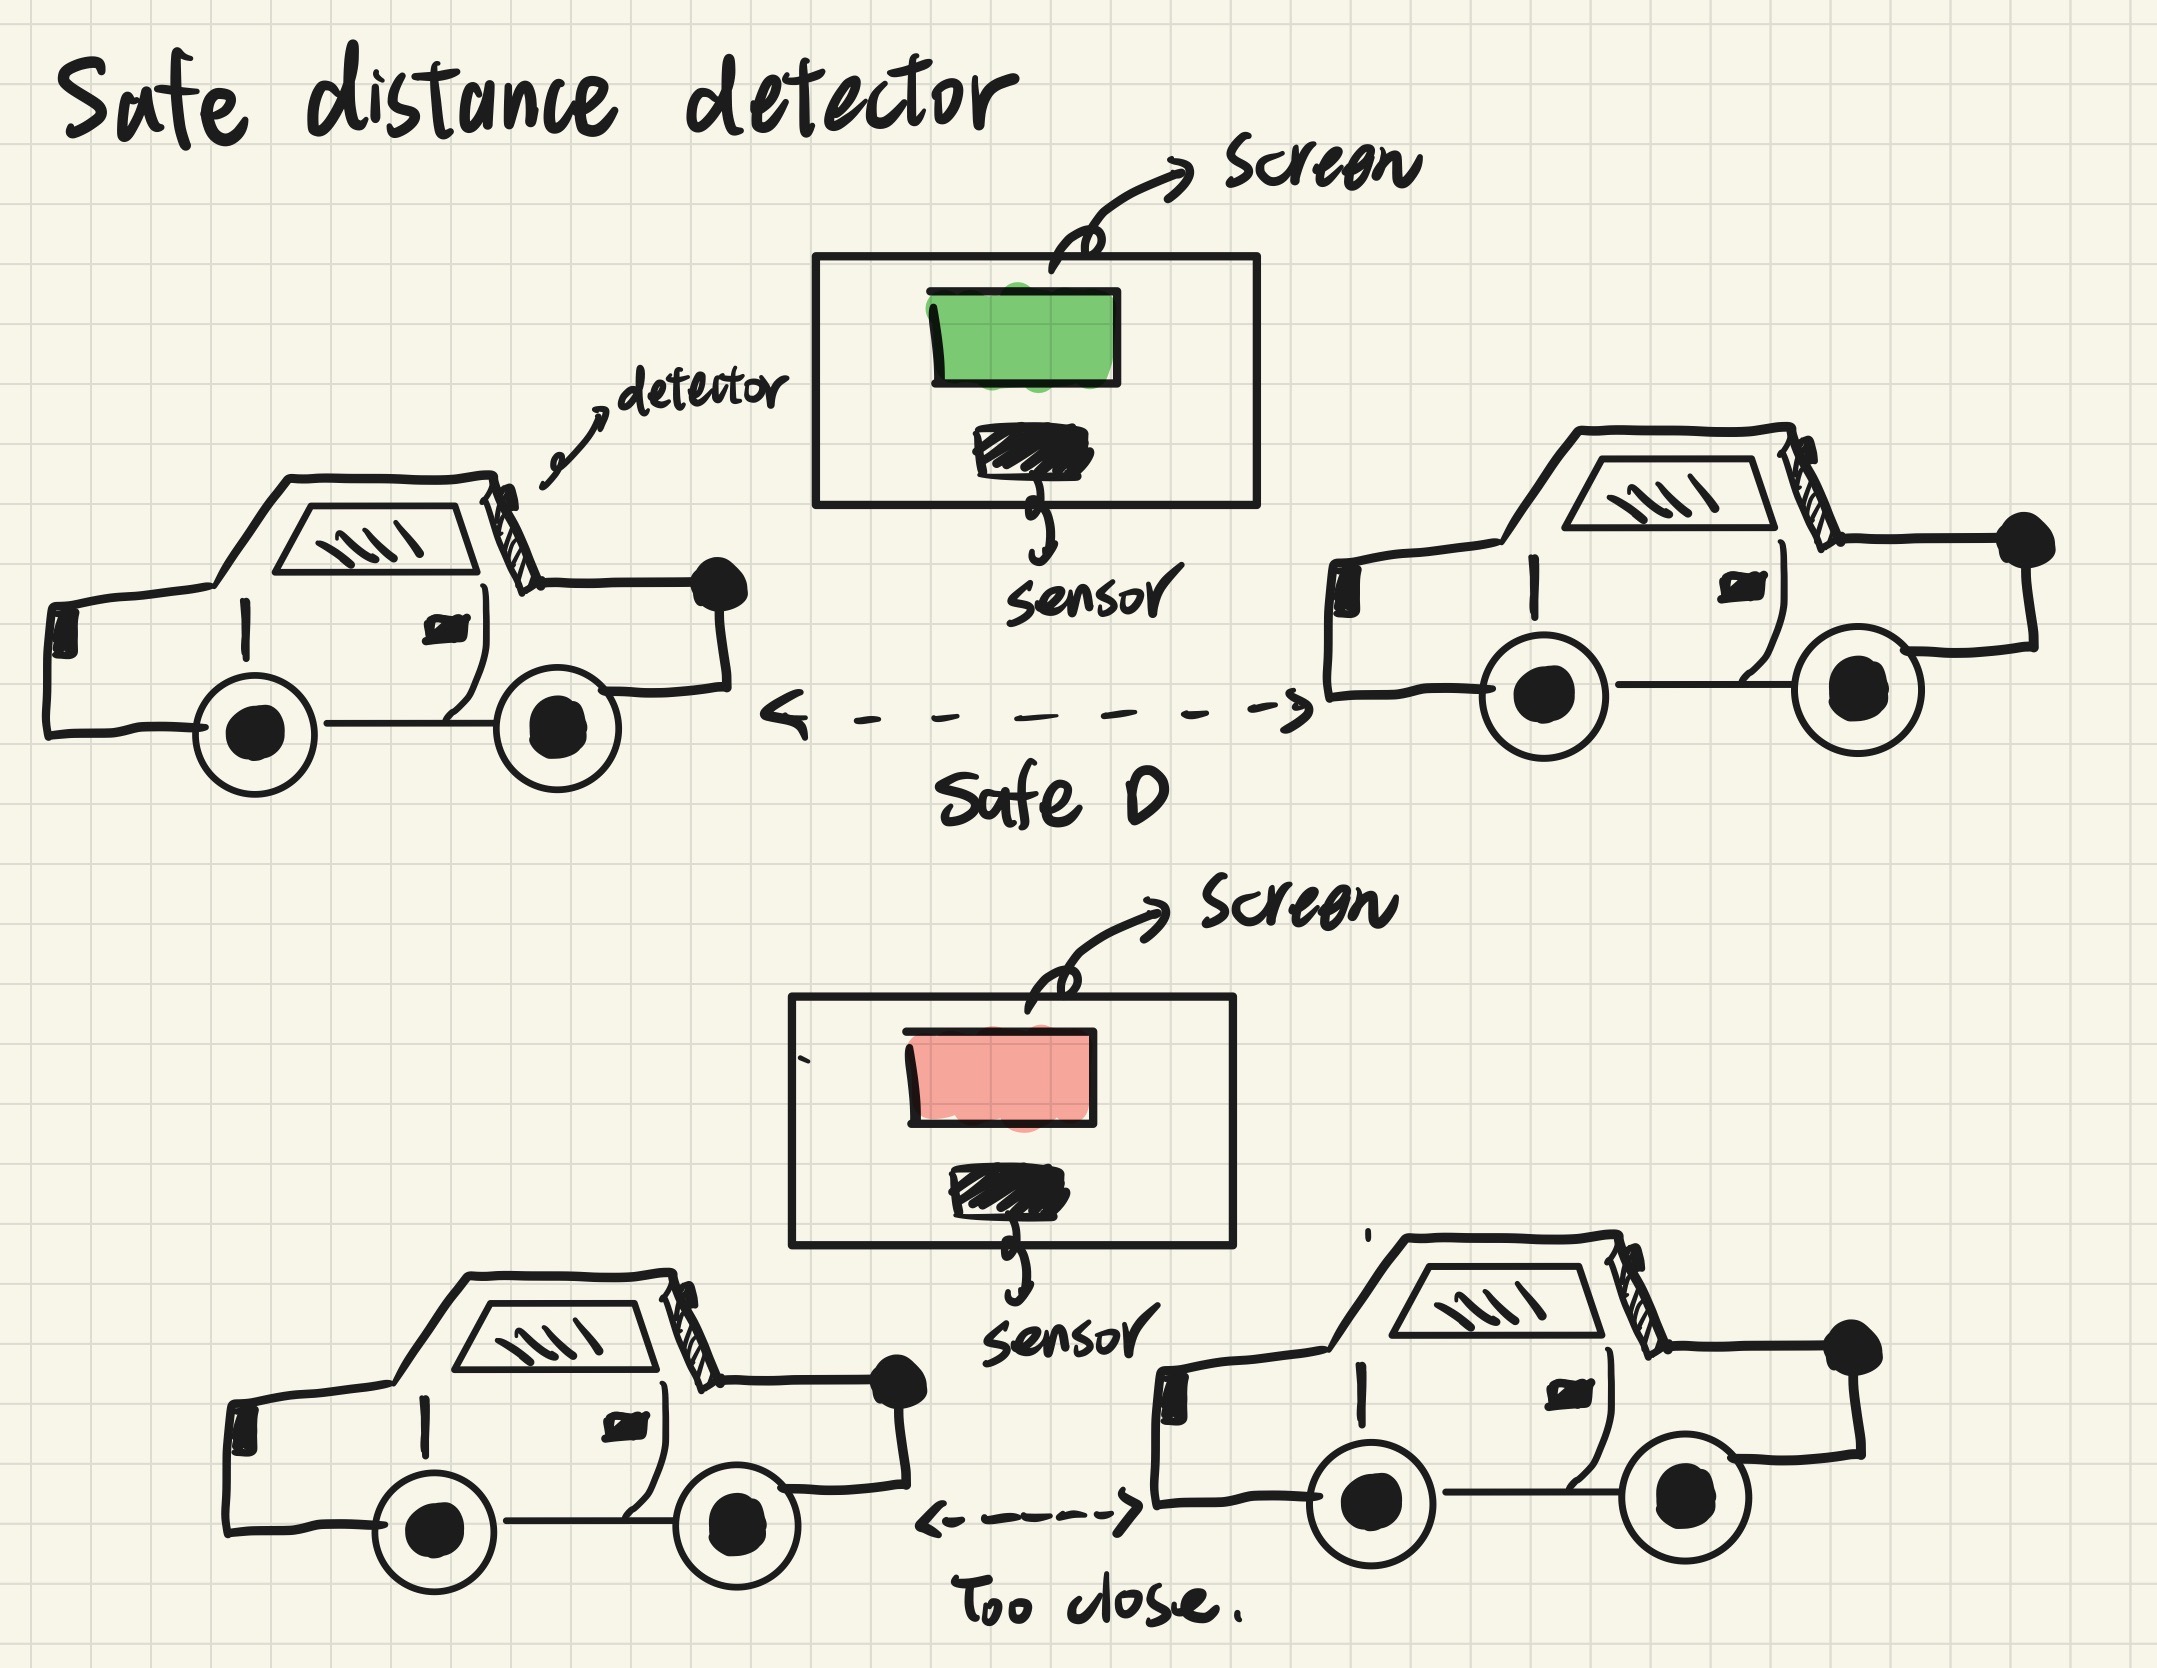 Safe distance detector
screen
detector
sensor
Safe D
screen
sensor
Too close.